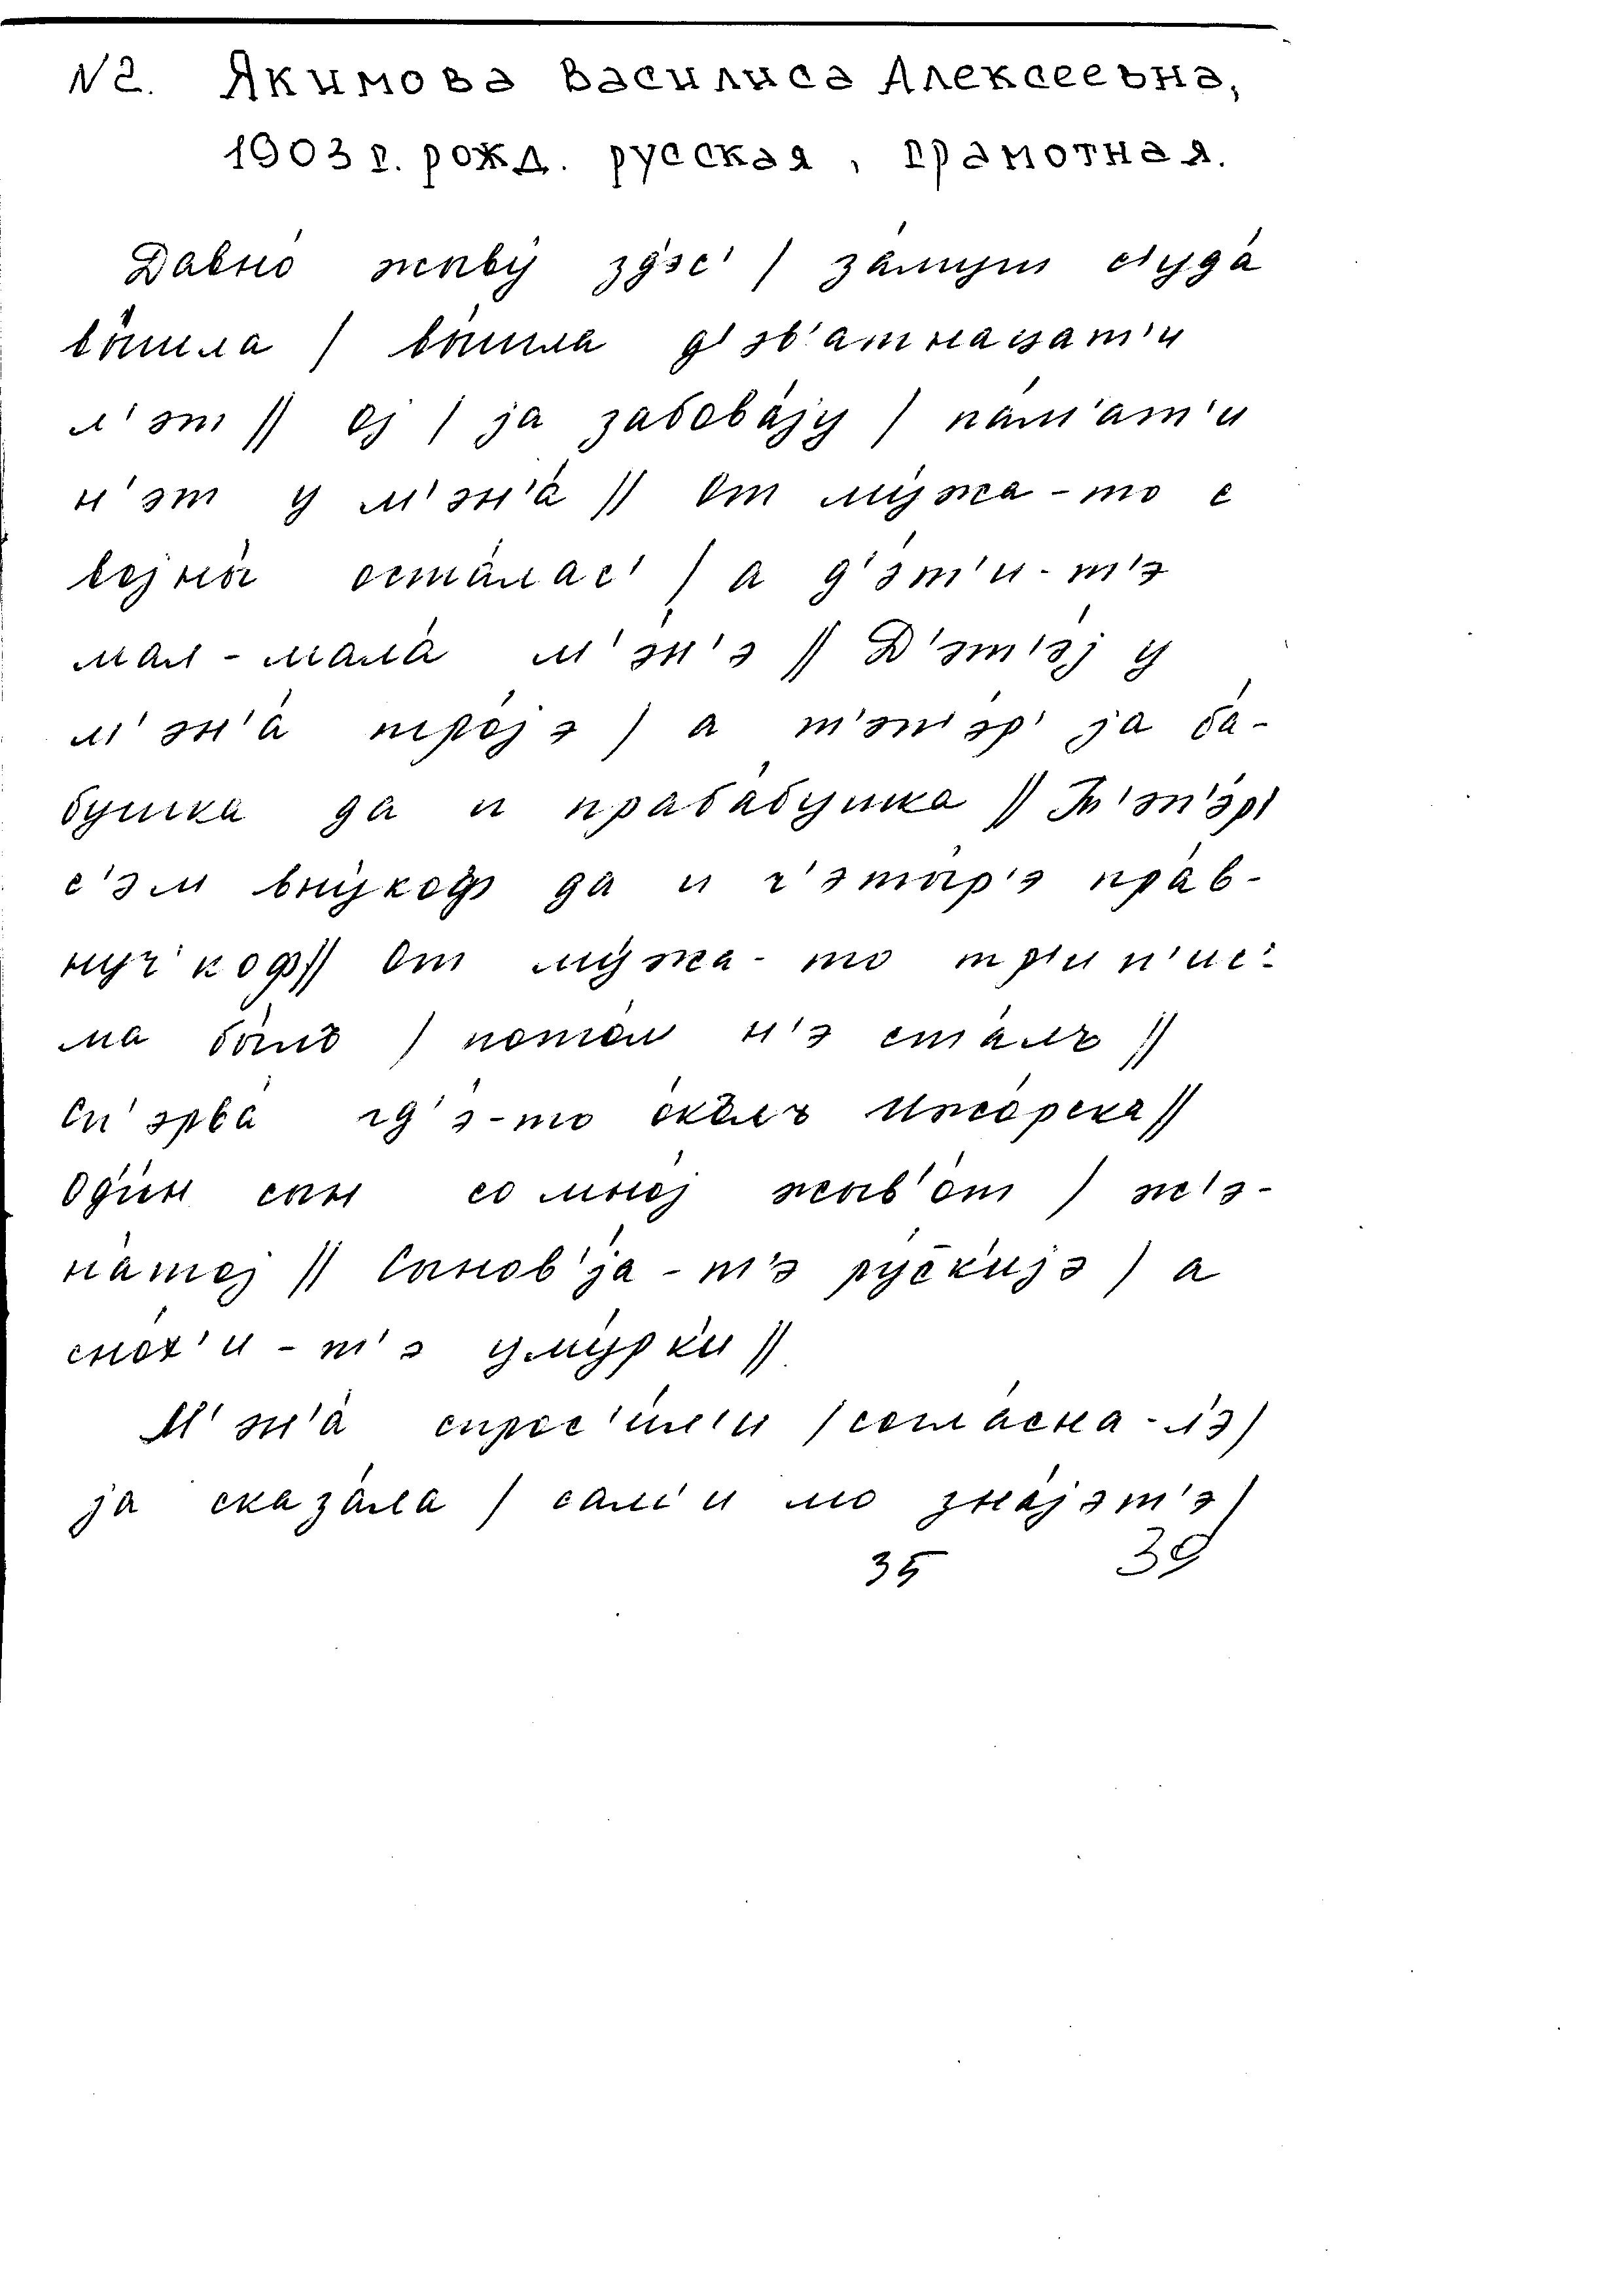 N2. Якимова Василиса Алексеевна,
1903 г. рожд. русская, грамотная.
Давно́ жыву́ зд'эс' / за́муш с'уда́
вы́шла / вы́шла д'эв'атнацат'и
л'эт // Ој / ја забова́јy / па́м'ат'и
н'эт у м'эн'а́ // От му́жа-то с
војны́ оста́лас' / а д'э́т'и-т'э
мал-мала́ м'э́н'э // Д'эт'э́ј у
м'эн'а́ тро́јэ / а т'эп'э́р' ја ба́-
бушка да и праба́бушка // Т'эп'э́р'
с'эм вну́коф да и ч'эты́р'э пра́в-
нуч'коф // От му́жа-то тр'и п'ис'-
ма бы́лъ / пото́м н'э ста́лъ //
Сп'эрва́ гд'э́-то о́колъ Ижо́рска //
Од'и́н сын со мно́ј жыв'о́т / ж'э-
на́тој // Сынов'ја́-т'э ру́с̄к'ијэ / а
сно́х'и-т'э уму́рк'и //
М'эн'а́ спрос'и́л'и / согла́сна-л'э /
ја сказа́ла / сам'и мо зна́јэт'э /
35 39